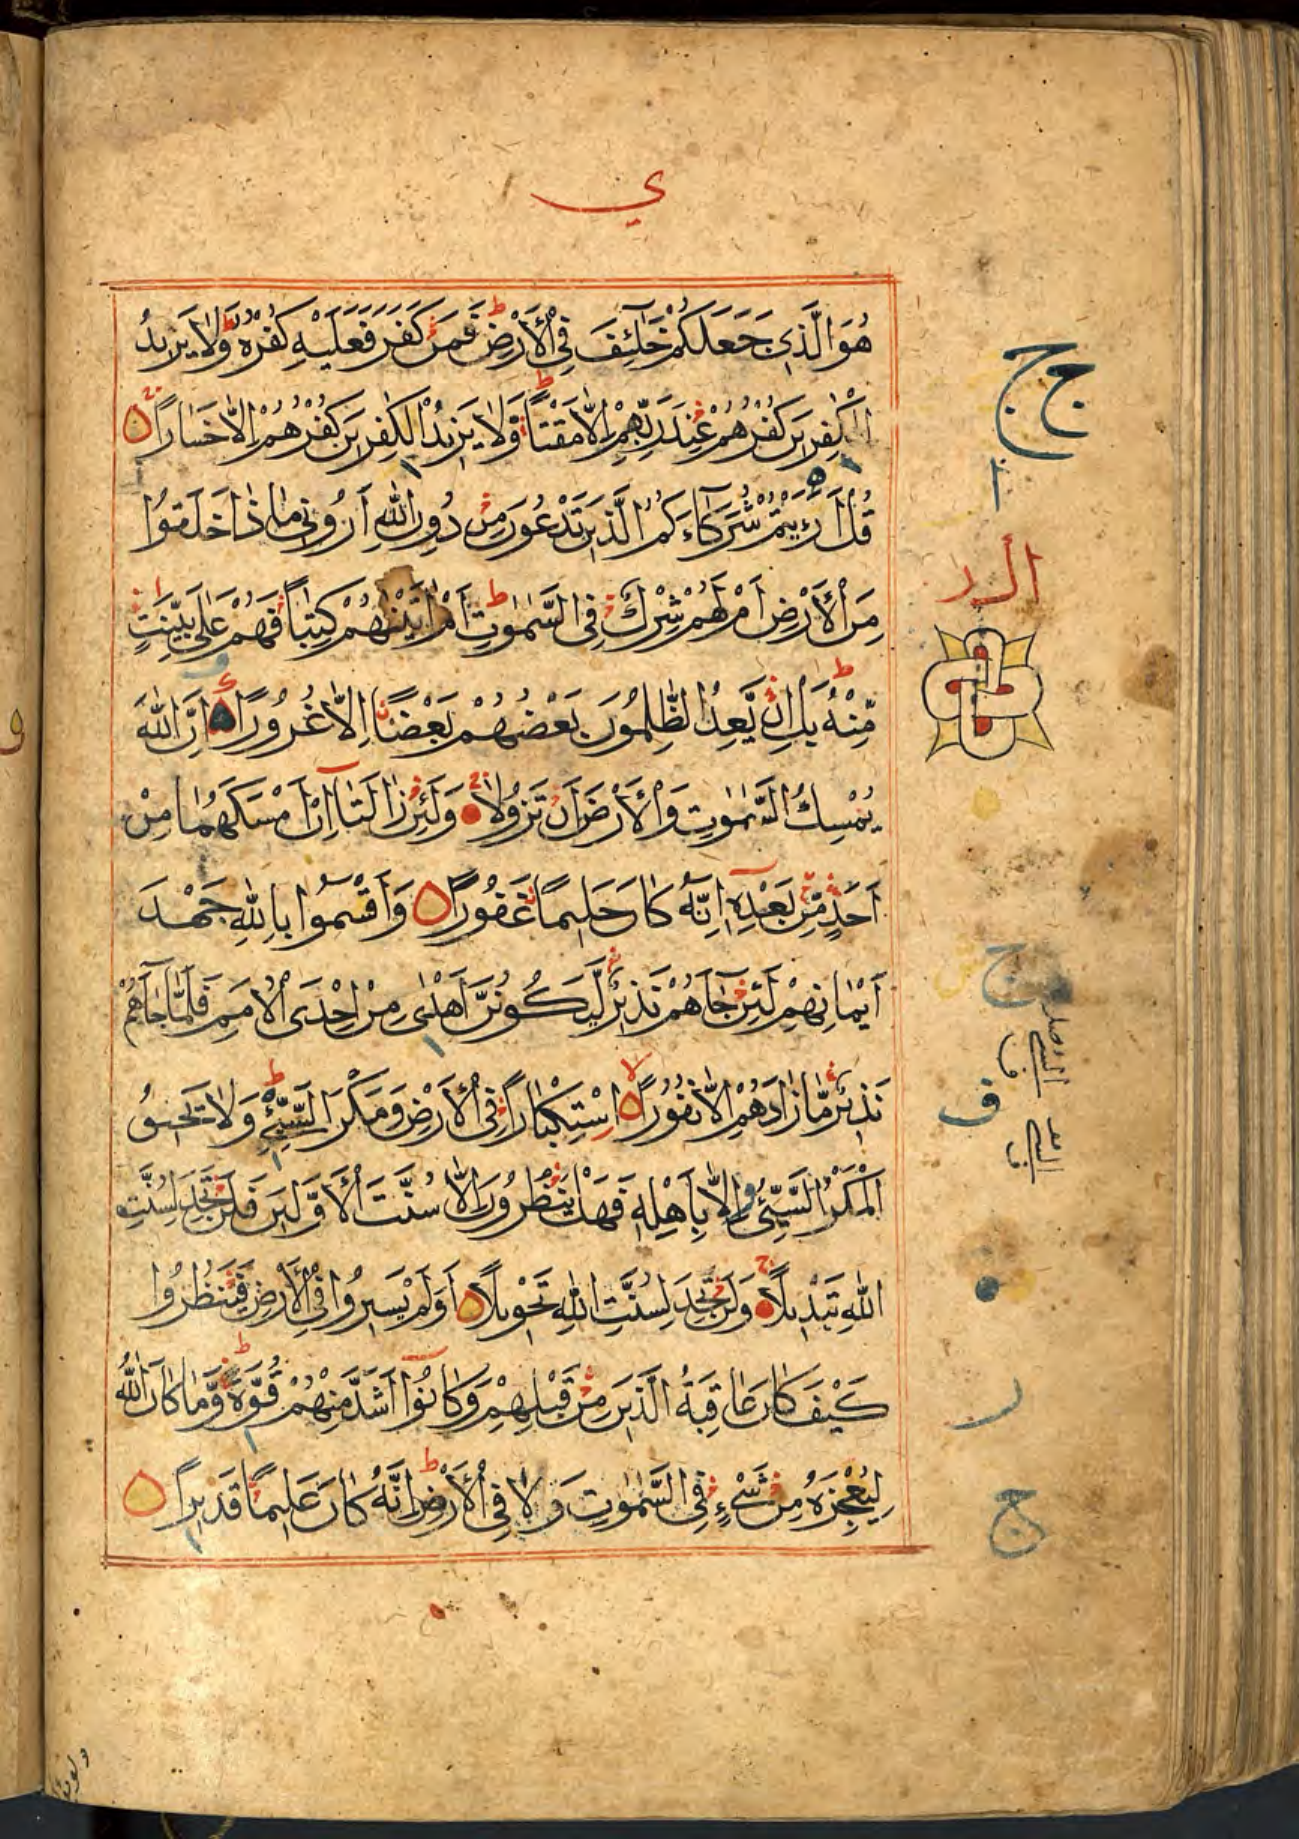 ي
هُوَ الَّذِي جَعَلَكُمْ خَلَٰٓئِفَ فِي الْأَرْضِ ط فَمَنْ كَفَرَ فَعَلَيْهِ كُفْرُهُ ط وَلَا يَزِيدُ
الْكَٰفِرِينَ كُفْرُهُمْ عِنْدَ رَبِّهِمْ إِلَّا مَقْتًا ط وَلَا يَزِيدُ الْكَٰفِرِينَ كُفْرُهُمْ إِلَّا خَسَارًا
قُلْ أَرَءَيْتُمْ شُرَكَآءَكُمُ الَّذِينَ تَدْعُونَ مِنْ دُونِ اللَّهِ أَرُونِي مَاذَا خَلَقُوا
مِنَ الْأَرْضِ أَمْ لَهُمْ شِرْكٌ فِي السَّمَٰوَٰتِ ط أَمْ اٰتَيْنَٰهُمْ كِتَٰبًا فَهُمْ عَلَىٰ بَيِّنَتٍ
مِّنْهُ ط بَلْ إِنْ يَّعِدُ الظَّٰلِمُونَ بَعْضُهُمْ بَعْضًا إِلَّا غُرُورًا إِنَّ اللَّهَ
يُمْسِكُ السَّمَٰوَٰتِ وَالْأَرْضَ أَنْ تَزُولَا وَلَئِنْ زَالَتَآ إِنْ أَمْسَكَهُمَا مِنْ
أَحَدٍ مِّنْ بَعْدِهِٓ إِنَّهُ كَانَ حَلِيمًا غَفُورًا وَأَقْسَمُوا بِاللَّهِ جَهْدَ
أَيْمَانِهِمْ لَئِنْ جَآءَهُمْ نَذِيرٌ لَّيَكُونُنَّ أَهْدَىٰ مِنْ إِحْدَى الْأُمَمِ فَلَمَّا جَآءَهُمْ
نَذِيرٌ مَّا زَادَهُمْ إِلَّا نُفُورًا لا اسْتِكْبَارًا فِي الْأَرْضِ وَمَكْرَ السَّيِّئِ ط وَلَا يَحِيقُ
الْمَكْرُ السَّيِّئُ إِلَّا بِأَهْلِهِ فَهَلْ يَنْظُرُونَ إِلَّا سُنَّتَ الْأَوَّلِينَ فَلَنْ تَجِدَ لِسُنَّتِ
اللَّهِ تَبْدِيلًا ج وَلَنْ تَجِدَ لِسُنَّتِ اللَّهِ تَحْوِيلًا أَوَلَمْ يَسِيرُوا فِي الْأَرْضِ فَيَنْظُرُوا
كَيْفَ كَانَ عَاقِبَةُ الَّذِينَ مِنْ قَبْلِهِمْ وَكَانُوٓا أَشَدَّ مِنْهُمْ قُوَّةً ط وَّمَا كَانَ اللَّهُ
لِيُعْجِزَهُ مِنْ شَيْءٍ فِي السَّمَٰوَٰتِ وَلَا فِي الْأَرْضِ ط إِنَّهُ كَانَ عَلِيمًا قَدِيرًا
ج ج
ا
ج
ف
ر
ج